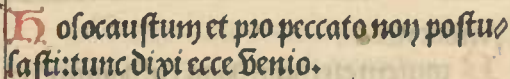 Holocaustum et pro peccato non postu⸗
lasti: tunc dixi ecce venio.